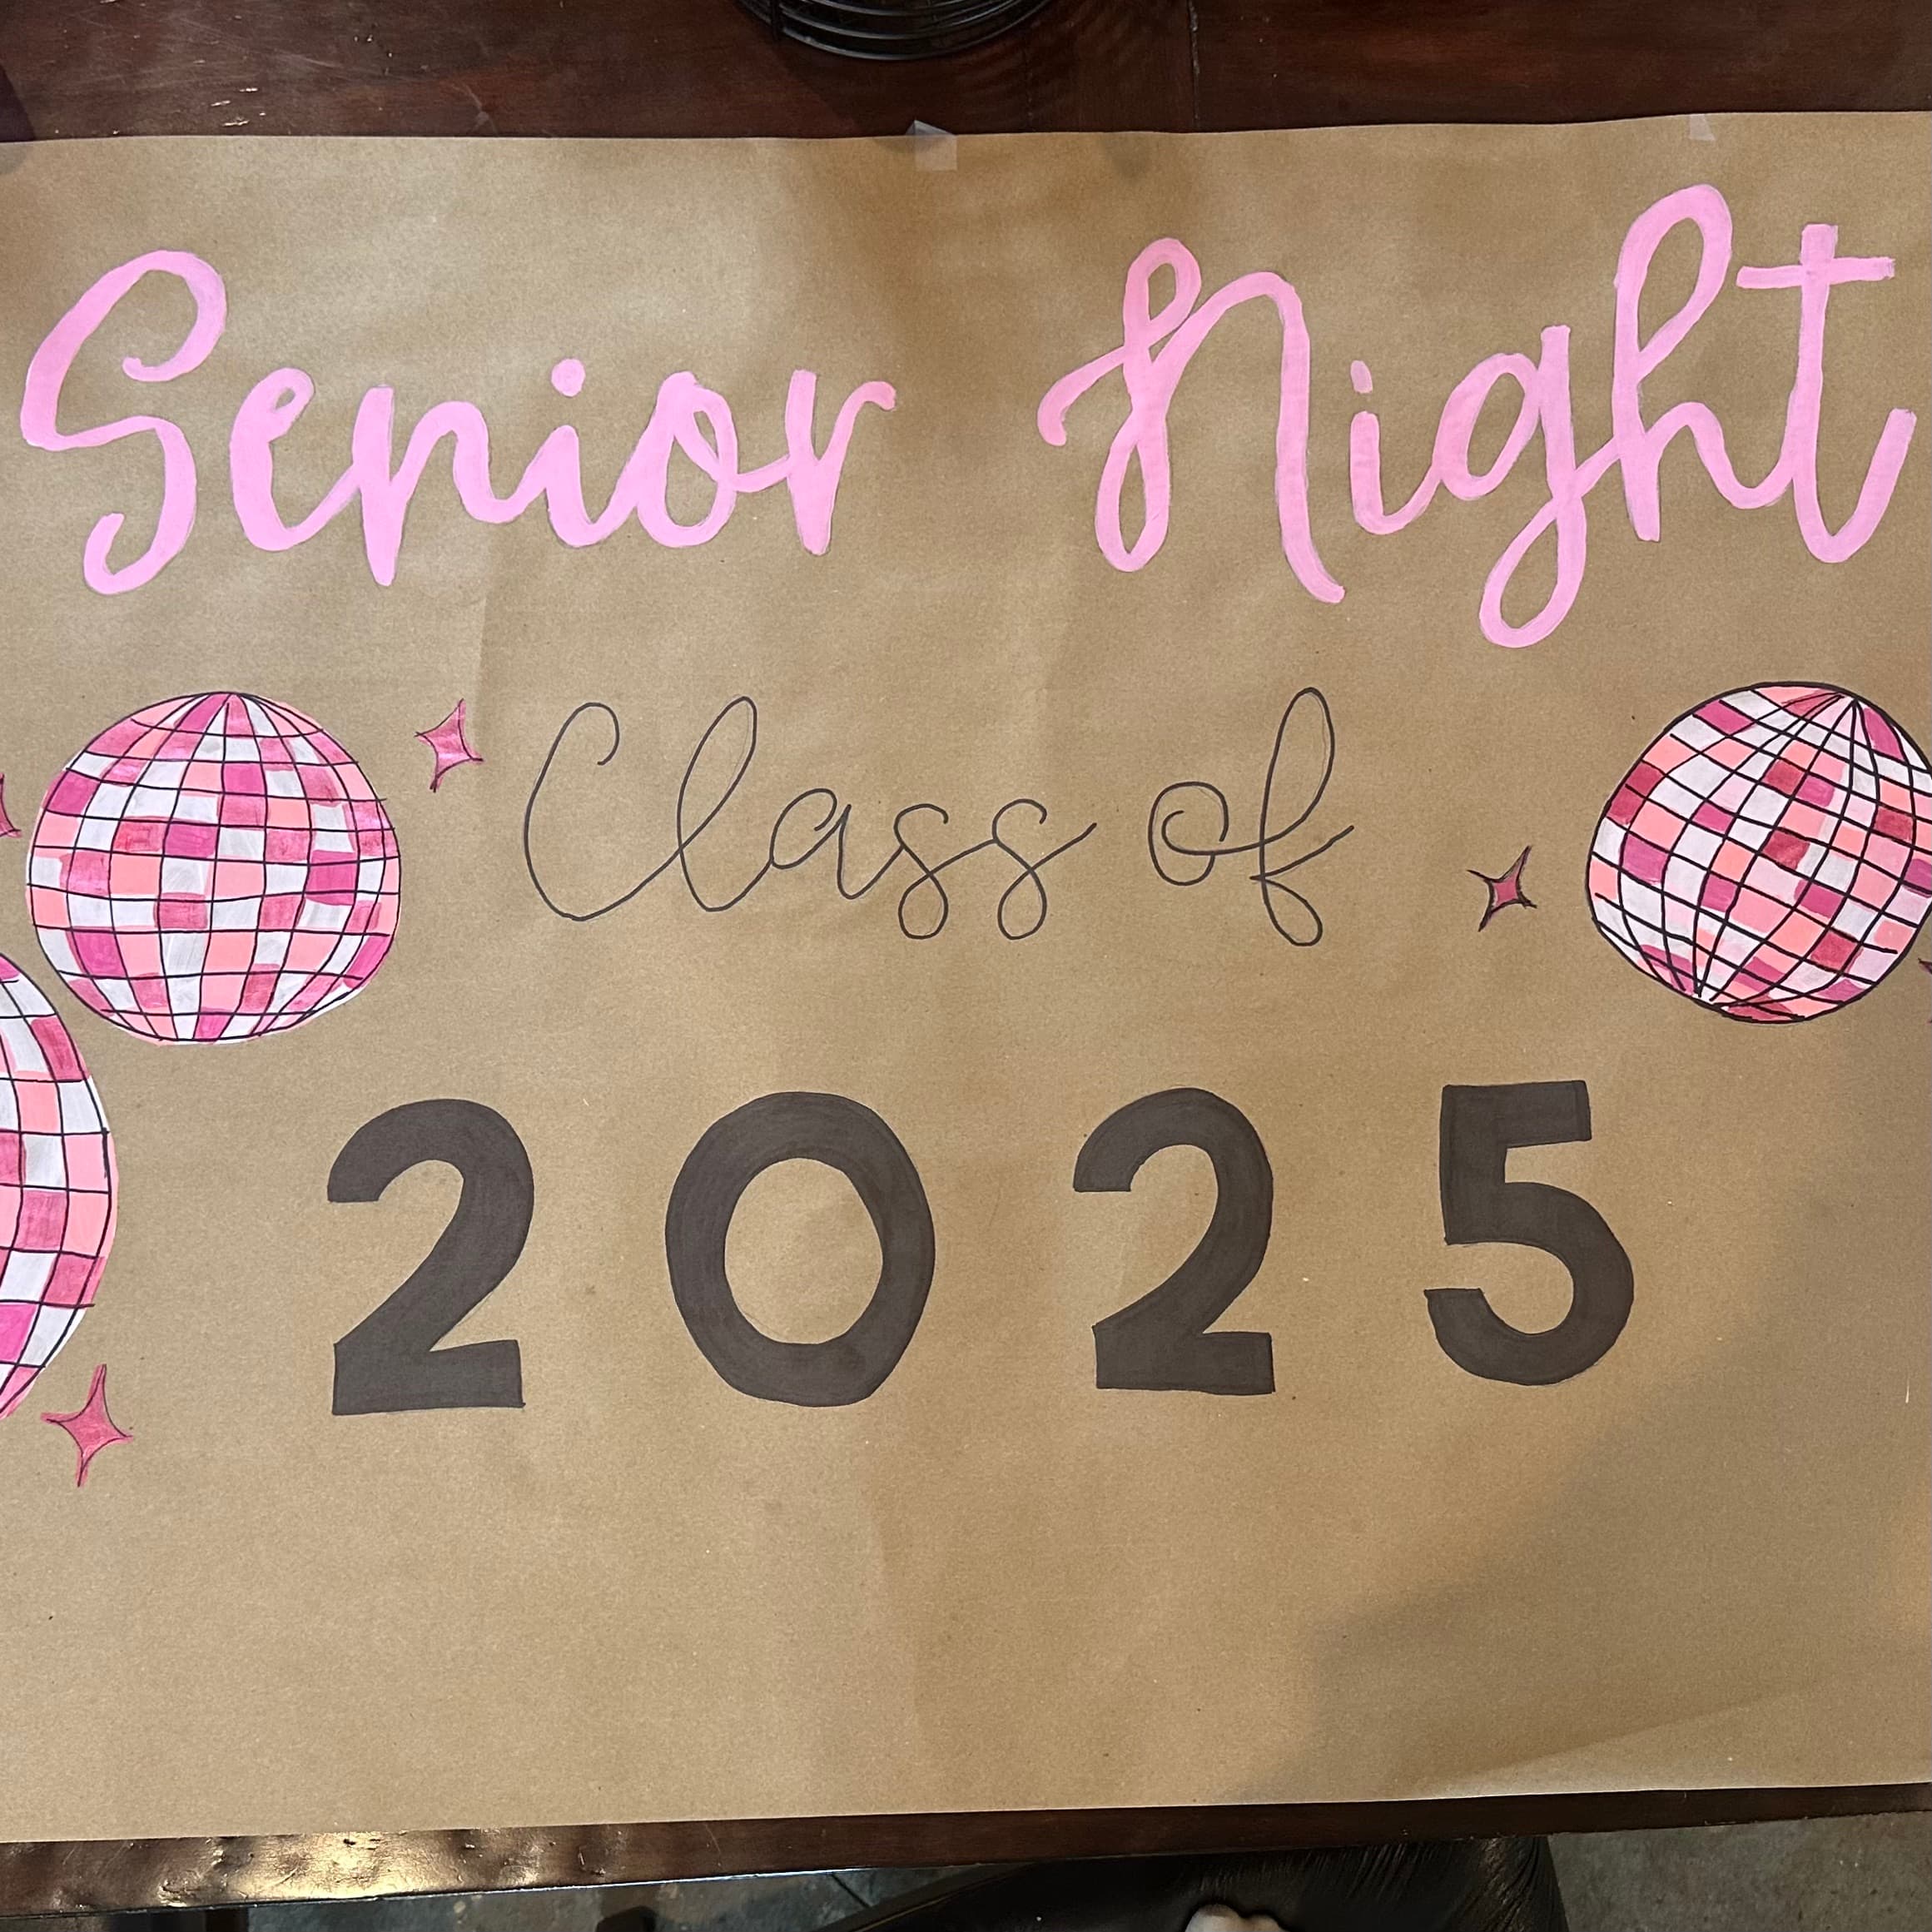 Senior Night
Class of
2025